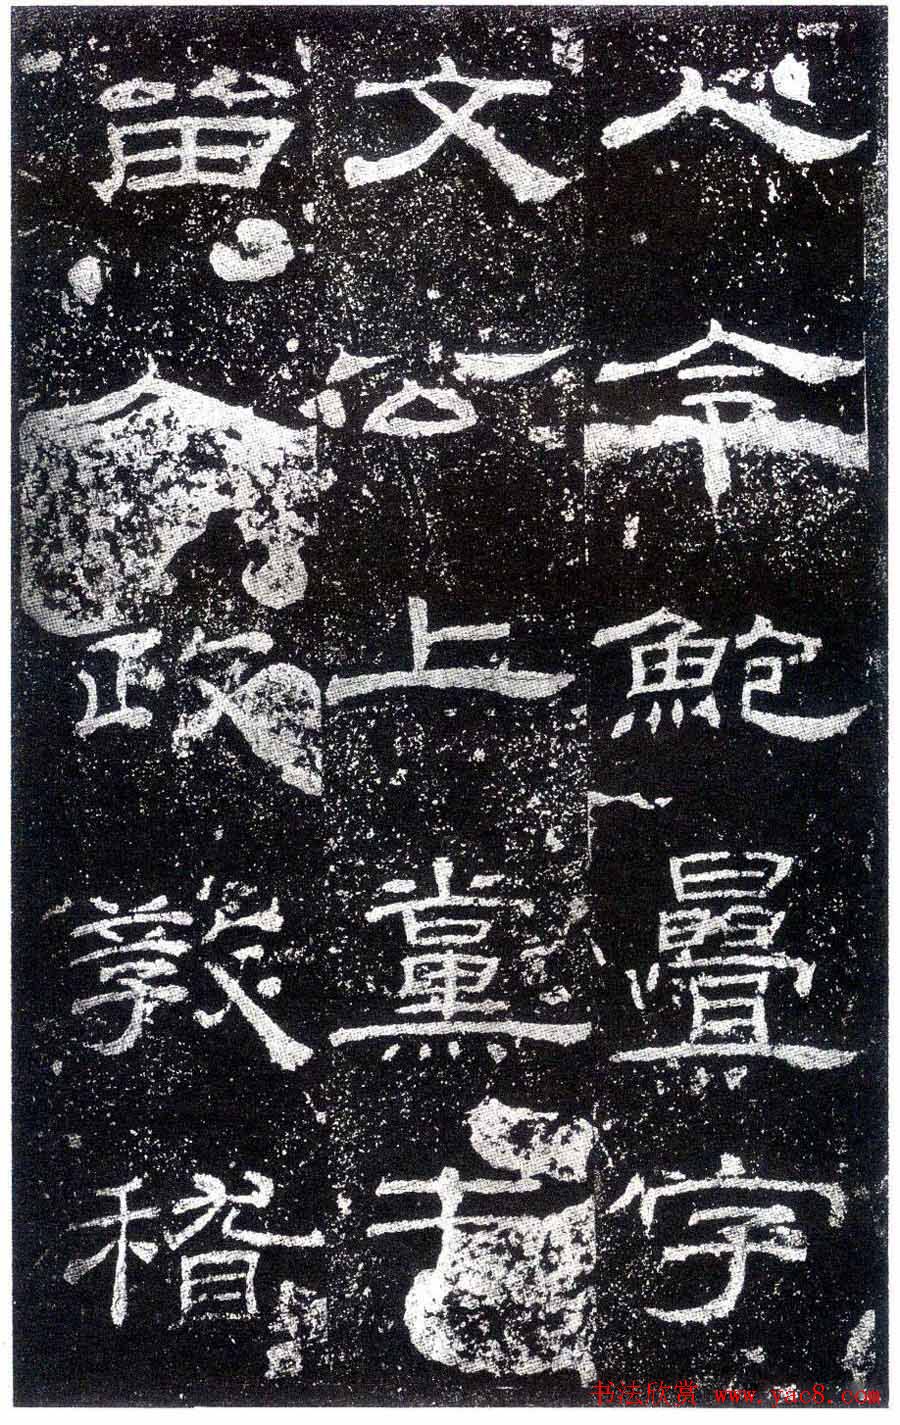 人令鮑疊字
文公上黨屯
留人政教稽
书法欣赏 www.yac8.com